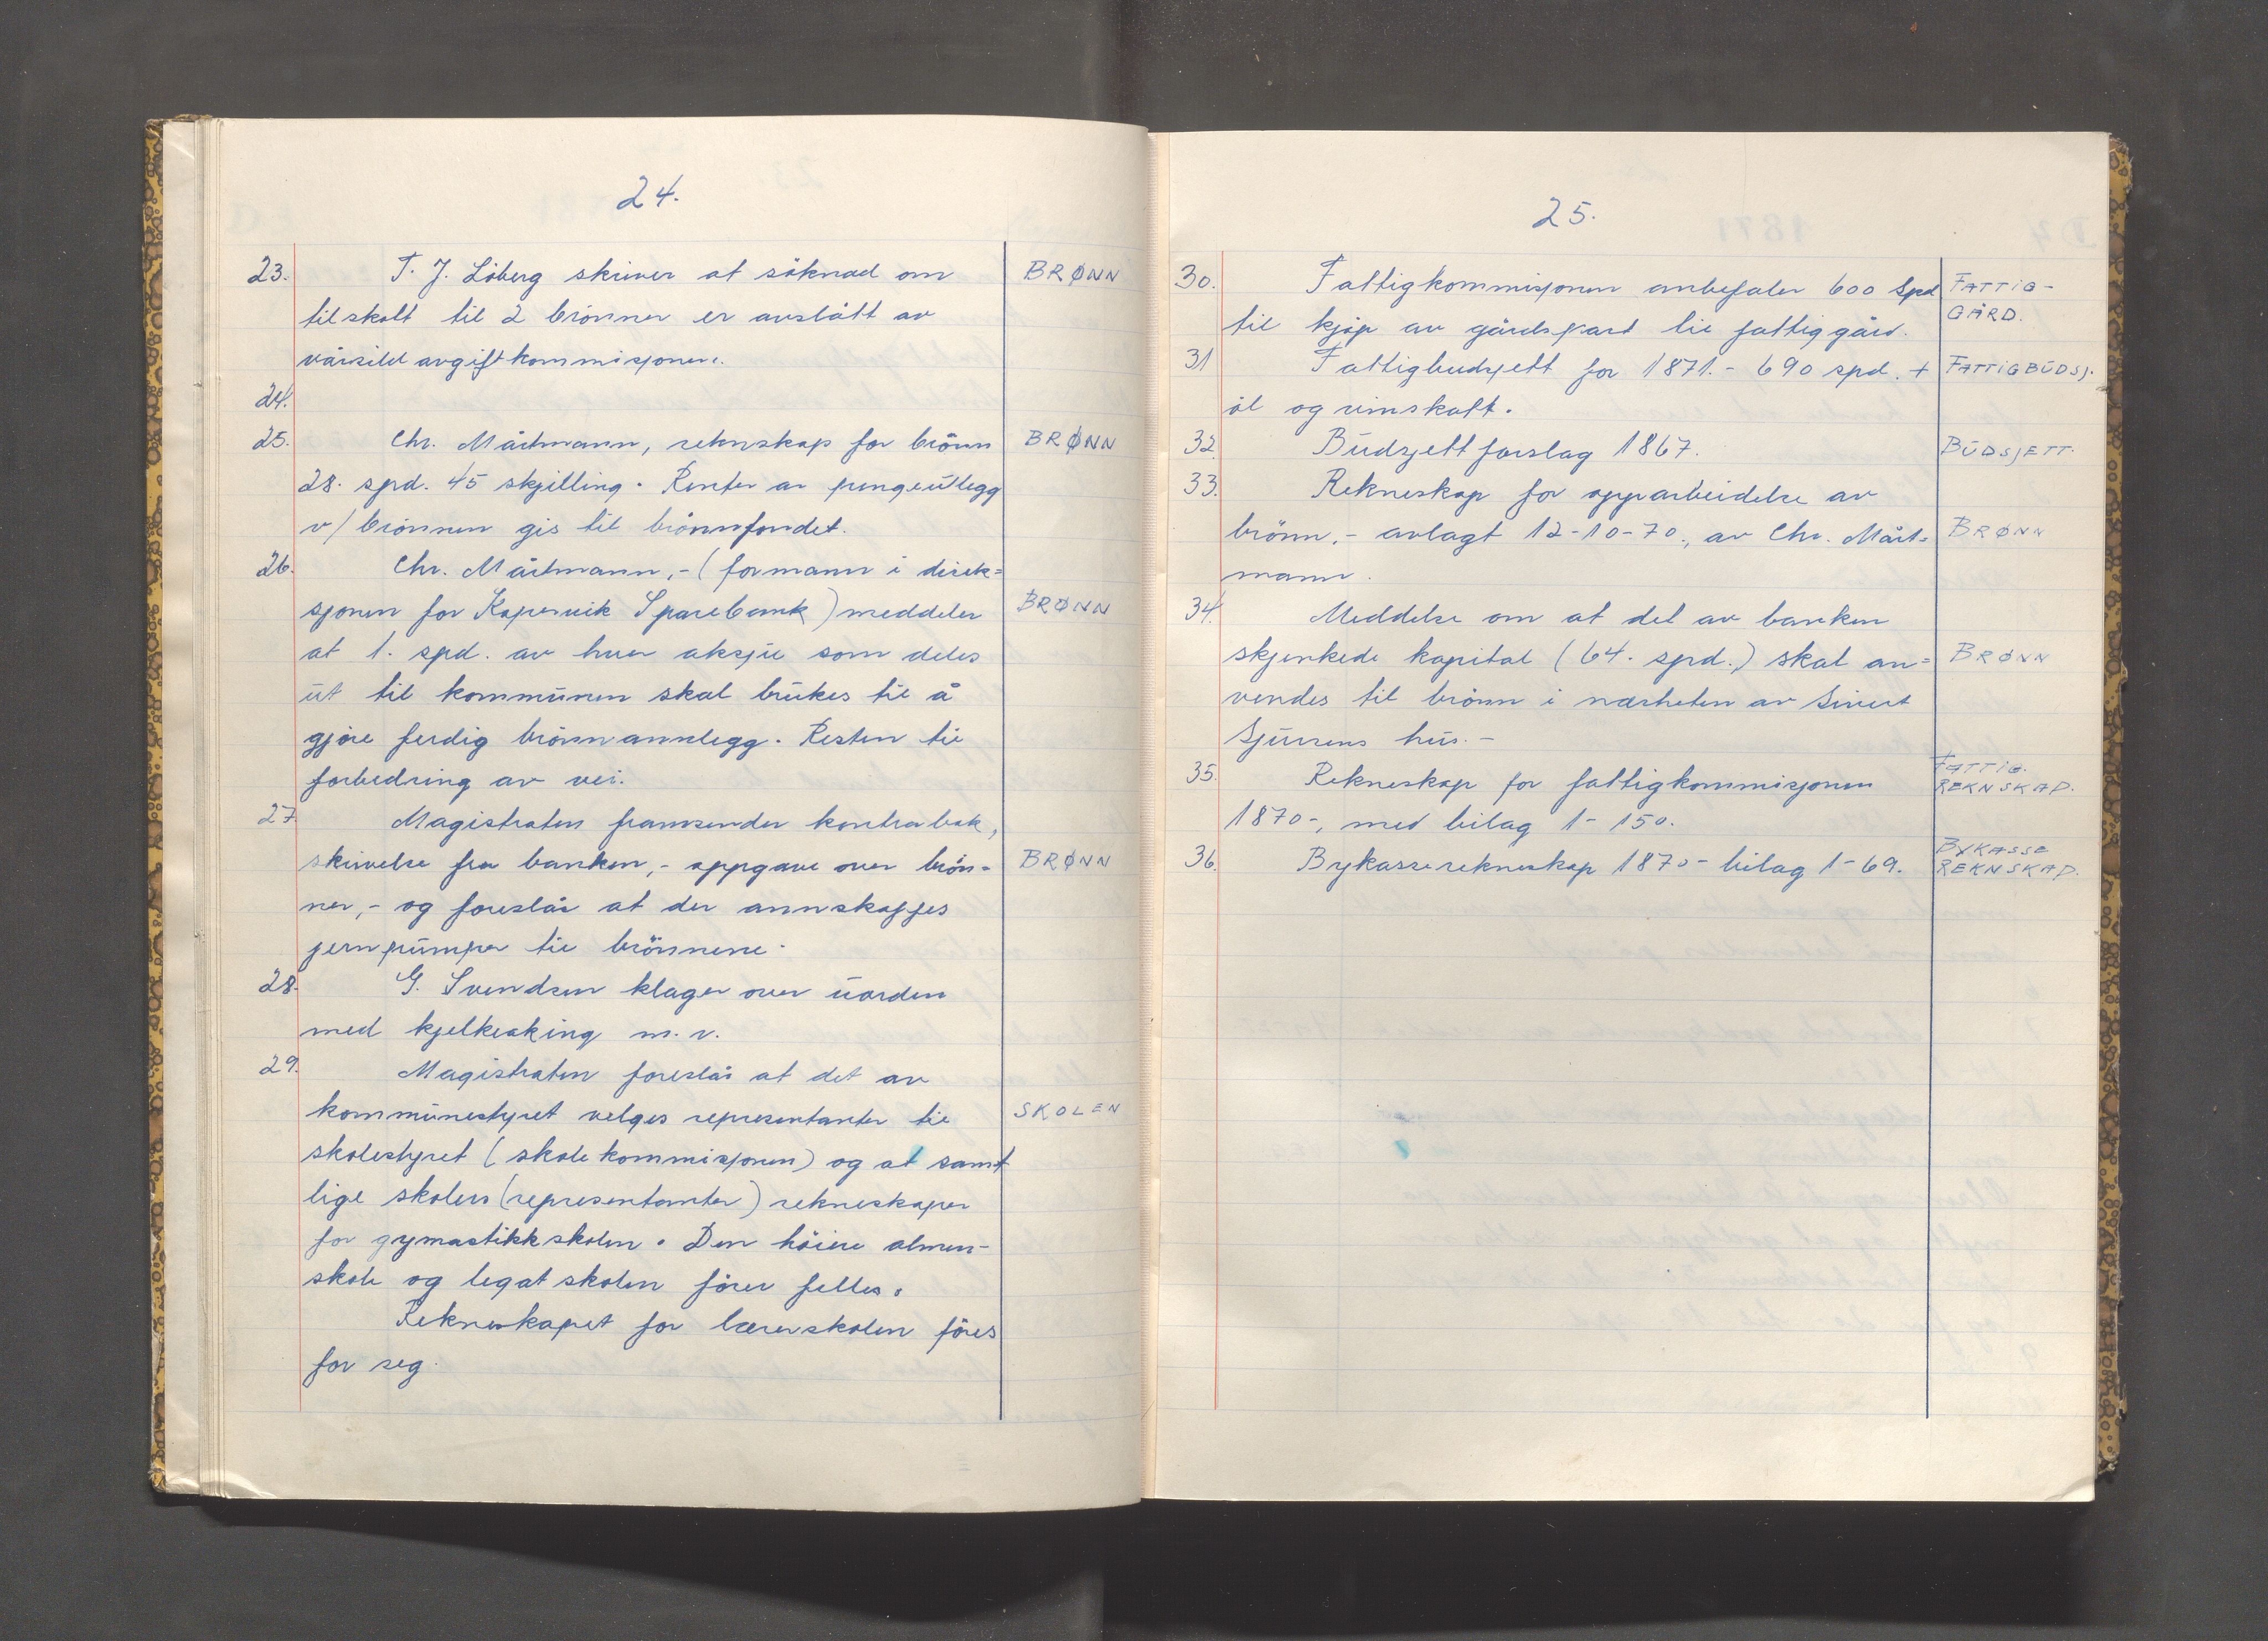 24.
23. T. J. Löberg skriver at söknad om BRØNN
tilskott til 2 brönner er avslått av
vårsild avgift kommisjonen.
24.
25. Chr. Mårtmann, reknskap for brönn BRØNN
28. spd. 45 skjilling. Renter av pengeutlegg
v/ brönnen gis til brönnfondet.
26. Chr. Mårtmann,- (formann i direk=
sjonen for Kopervik Sparebank) meddeler BRØNN
at 1. spd. av hver aksje som deles
ut til kommunen skal brukes til å
gjöre ferdig brönnannlegg. Resten til
forbedring av vei.
27. Magistraten framsender kontrabok,
skrivelse fra banken,- oppgave over brön- BRØNN
ner,- og foreslår at der annskaffes
jernpumper til brönnene.
28. G. Svendsen klager over uorden
med kjelkeaking m.v.
29. Magistraten foreslår at det av
kommunestyret velges representanter til SKOLEN
skolestyret (skolekommisjonen) og at samt
lige skolers (representanter) rekneskaper
for gymastikkskolen. Den höiere almen-
skole og legatskolen förer felles.
Rekneskapet for lærerskolen föres
for seg.
25.
30. Fattigkommisjonen anbefaler 600 Spd FATTIG-
til kjöp av gårdspart til fattiggård. GÅRD.
31 Fattigbudsjett for 1871.- 690 spd. + FATTIGBUDSJ.
öl og vinskatt.
32. Budsjettforslag 1867. BUDSJETT.
33. Rekneskap for opparbeidelse av
brönn,- avlagt 12-10-70., av Chr. Mårt= BRØNN
mann.
34. Meddelse om at det av banken
skjenkede kapital (64. spd.) skal an= BRØNN
vendes til brönn i nærheten av Sivert
Sjursens hus.-
35. Rekneskap for fattigkommisjonen FATTIG.
REKNSKAP.
1870-, med bilag 1-150.
36. Bykasserekneskap 1870- bilag 1-69. BYKASSE
REKNSKAP.